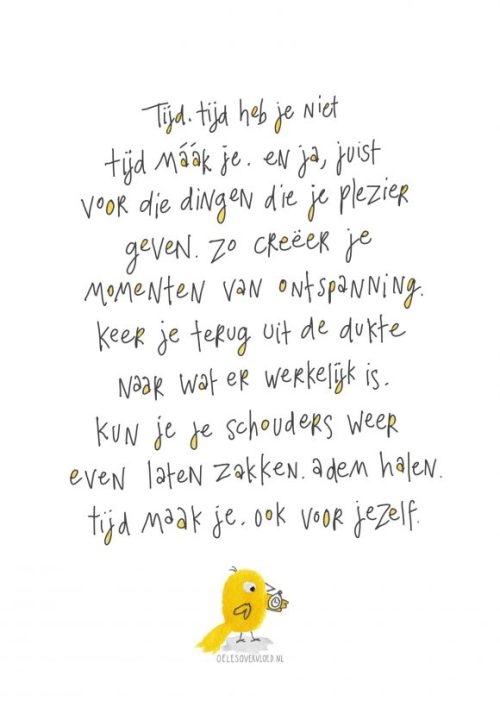 Tijd. tijd heb je niet
tijd máák je. en ja, juist
voor die dingen die je plezier
geven. zo creëer je
momenten van ontspanning.
keer je terug uit de dukte
naar wat er werkelijk is.
kun je je schouders weer
even laten zakken. adem halen.
tijd maak je. ook voor jezelf.
OELESOVERVLOED.NL